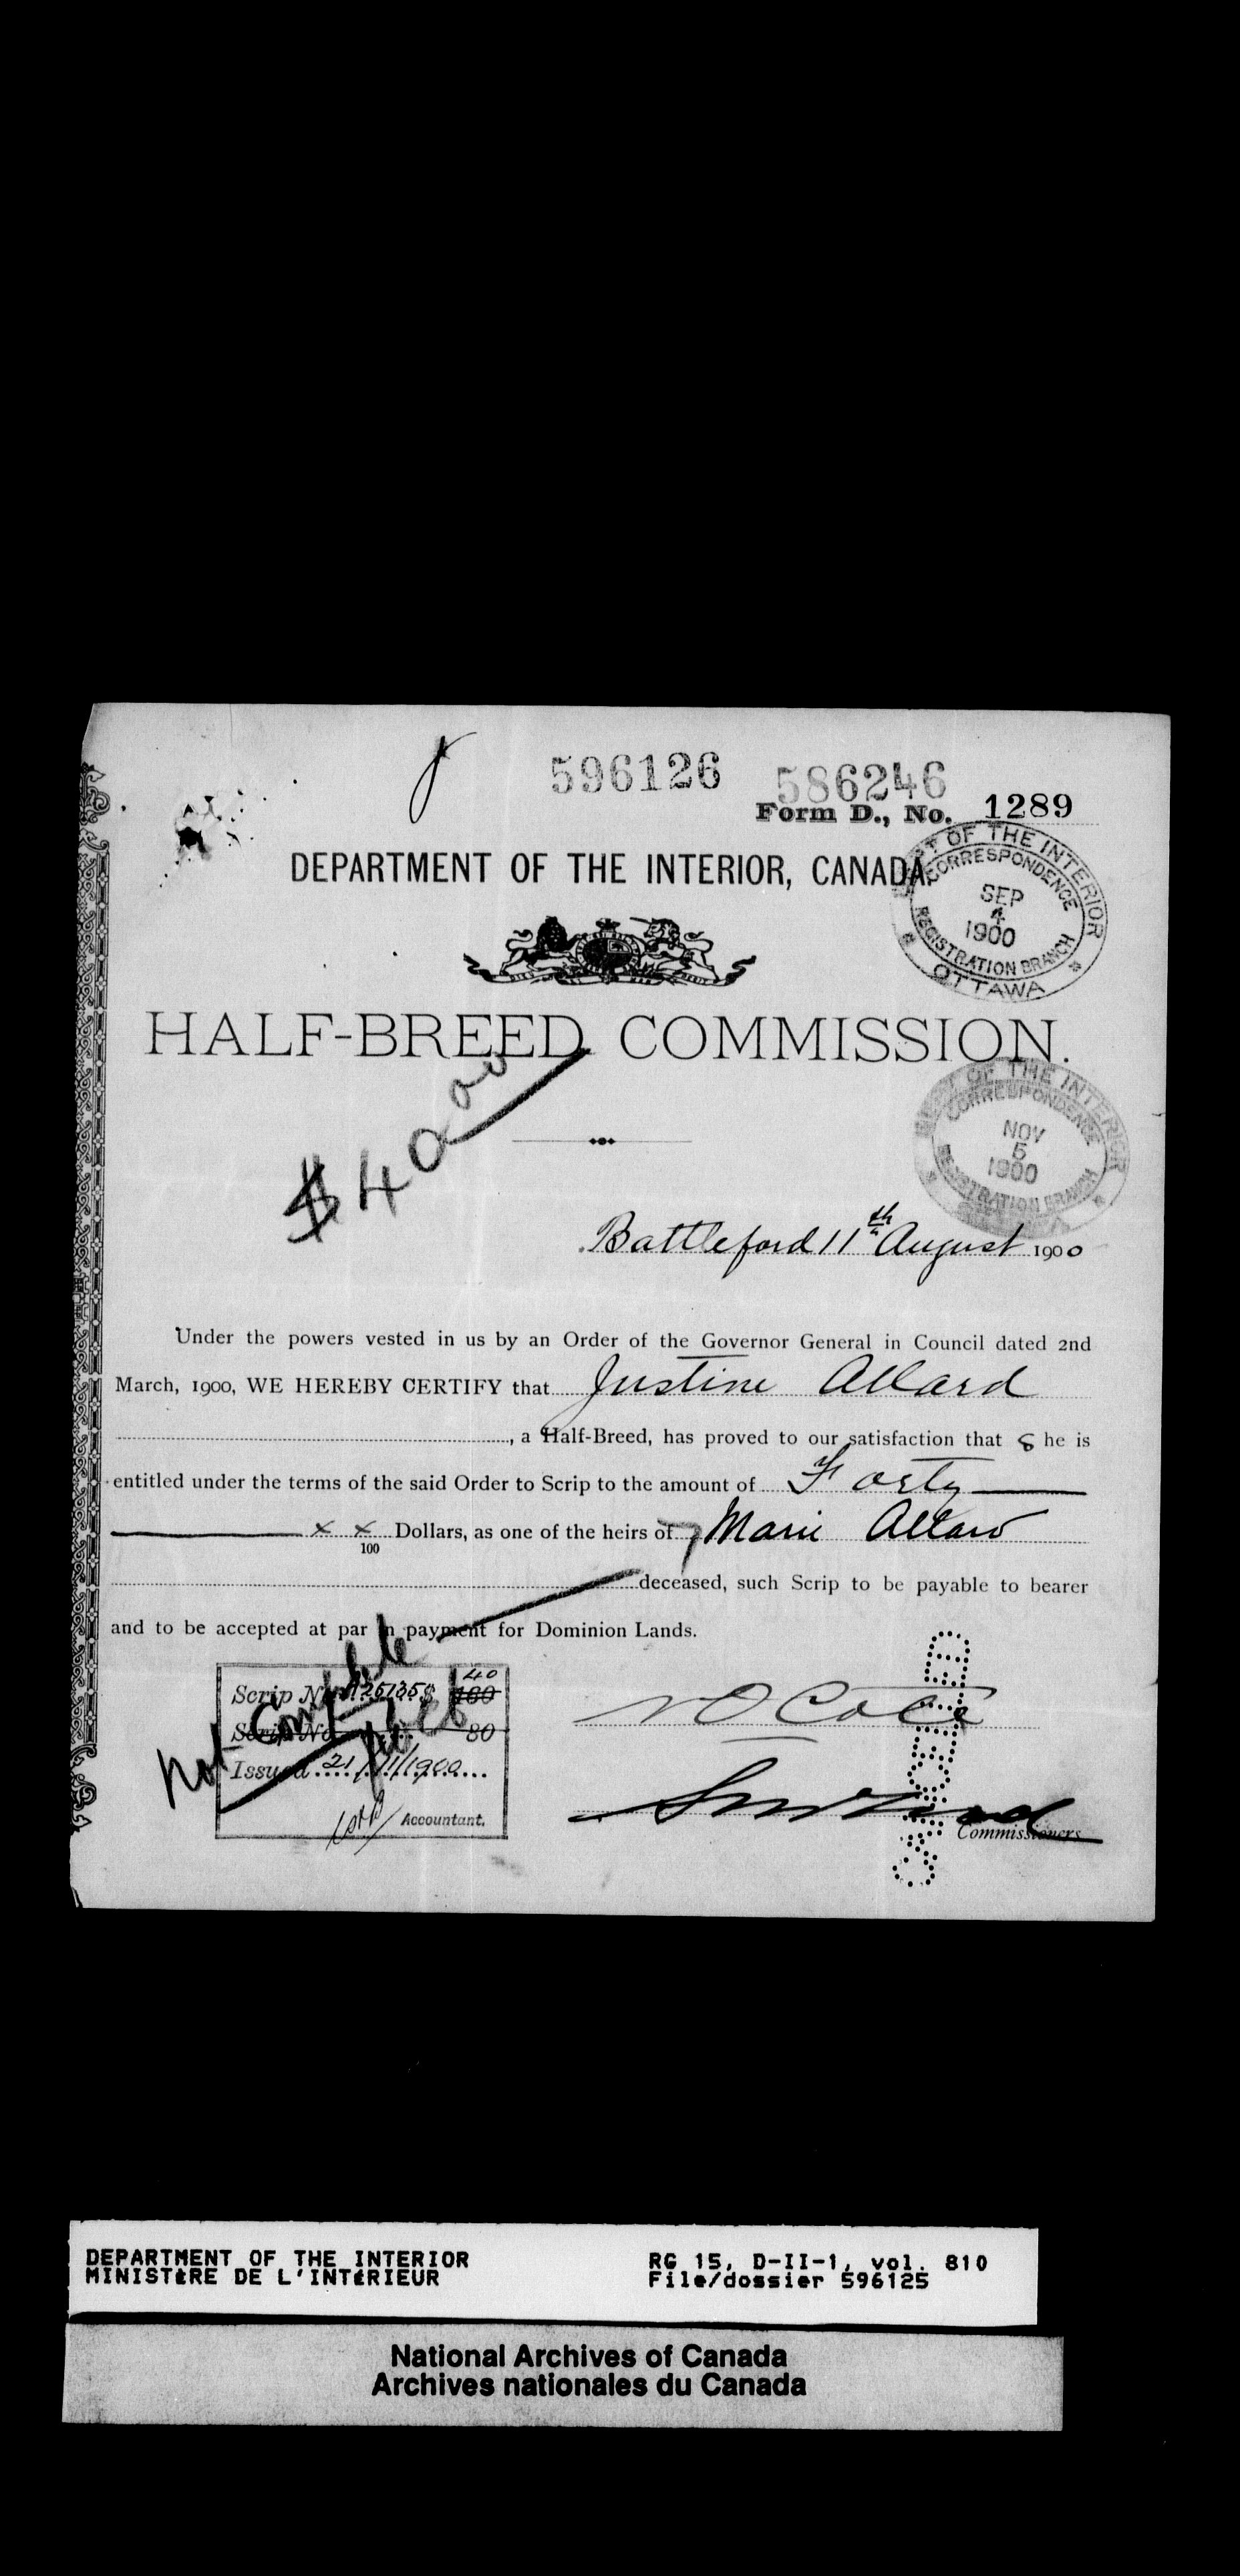 596126 586246
Form D., No. 1289
DEPARTMENT OF THE INTERIOR, CANADA.
DEPT OF THE INTERIOR
CORRESPONDENCE
SEP
4
1900
REGISTRATION BRANCH
OTTAWA
HALF-BREED COMMISSION.
$40 00
DEPT OF THE INTERIOR
CORRESPONDENCE
NOV
5
1900
REGISTRATION BRANCH
Battleford 11th August 1900
Under the powers vested in us by an Order of the Governor General in Council dated 2nd
March, 1900, WE HEREBY CERTIFY that Justine Allard
, a Half-Breed, has proved to our satisfaction that s he is
entitled under the terms of the said Order to Scrip to the amount of Forty
x x/100 Dollars, as one of the heirs of Marie Allard
deceased, such Scrip to be payable to bearer
and to be accepted at par in payment for Dominion Lands.
Not Complete
40
Scrip No. 160
Scrip No. 80
Issued 21/11/1900
Accountant.
N O Coté
Commissioners
DEPARTMENT OF THE INTERIOR
MINISTÈRE DE L'INTÉRIEUR
RG 15, D-II-1, vol. 810
File/dossier 596125
National Archives of Canada
Archives nationales du Canada